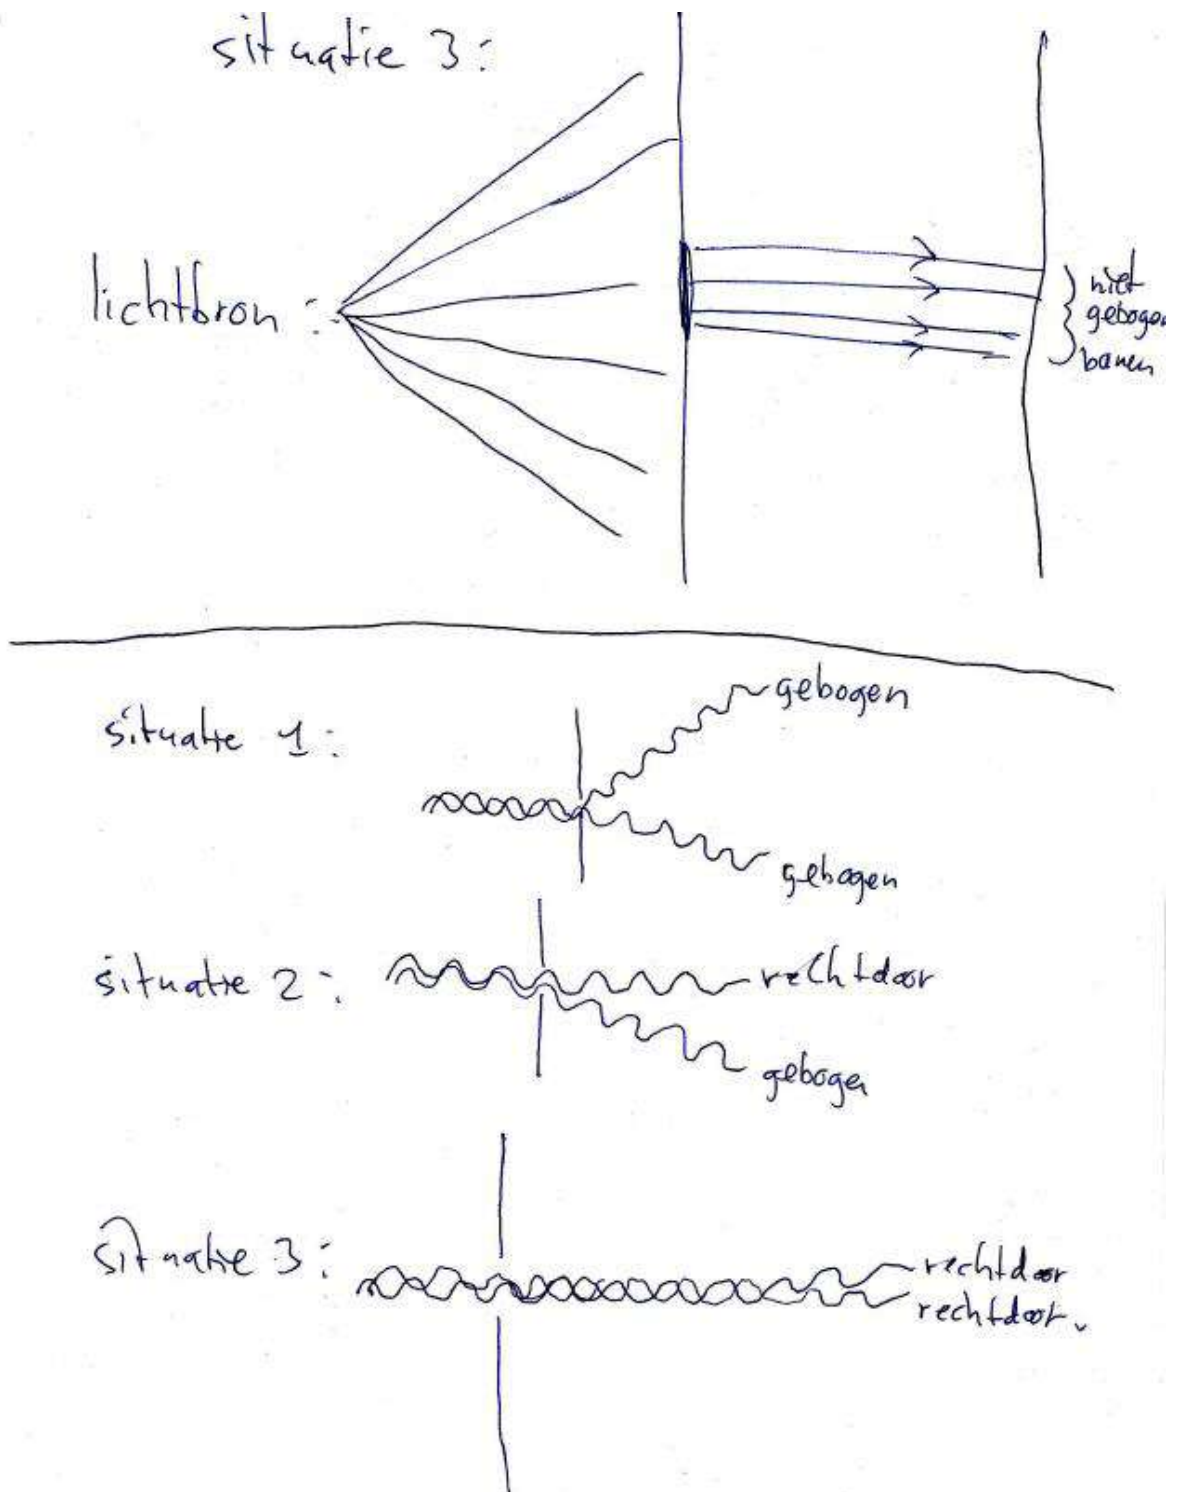 situatie 3:
lichtbron :
niet
gebogen
banen
situatie 1:
gebogen
gebogen
situatie 2:
rechtdoor
gebogen
situatie 3:
rechtdoor
rechtdoor.